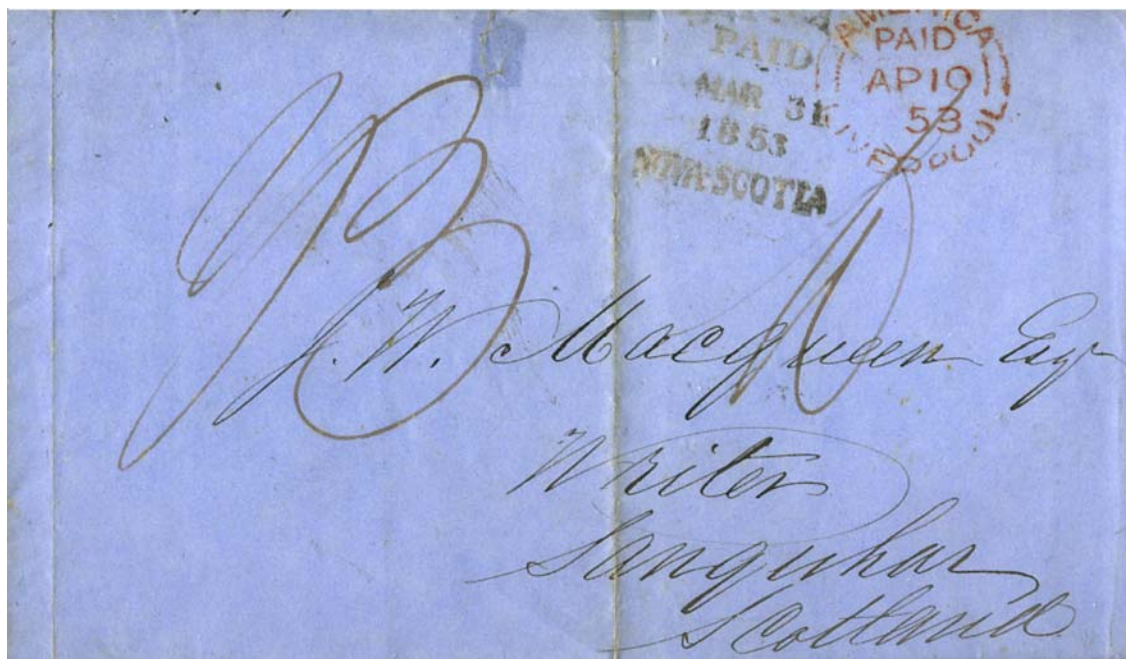 PAID
MAR 31
1853
NOVA SCOTIA
AMERICA
PAID
AP 10
53
LIVERPOOL
J. W. Macqueen Esqr
Writer
Sanquhar
Scotland